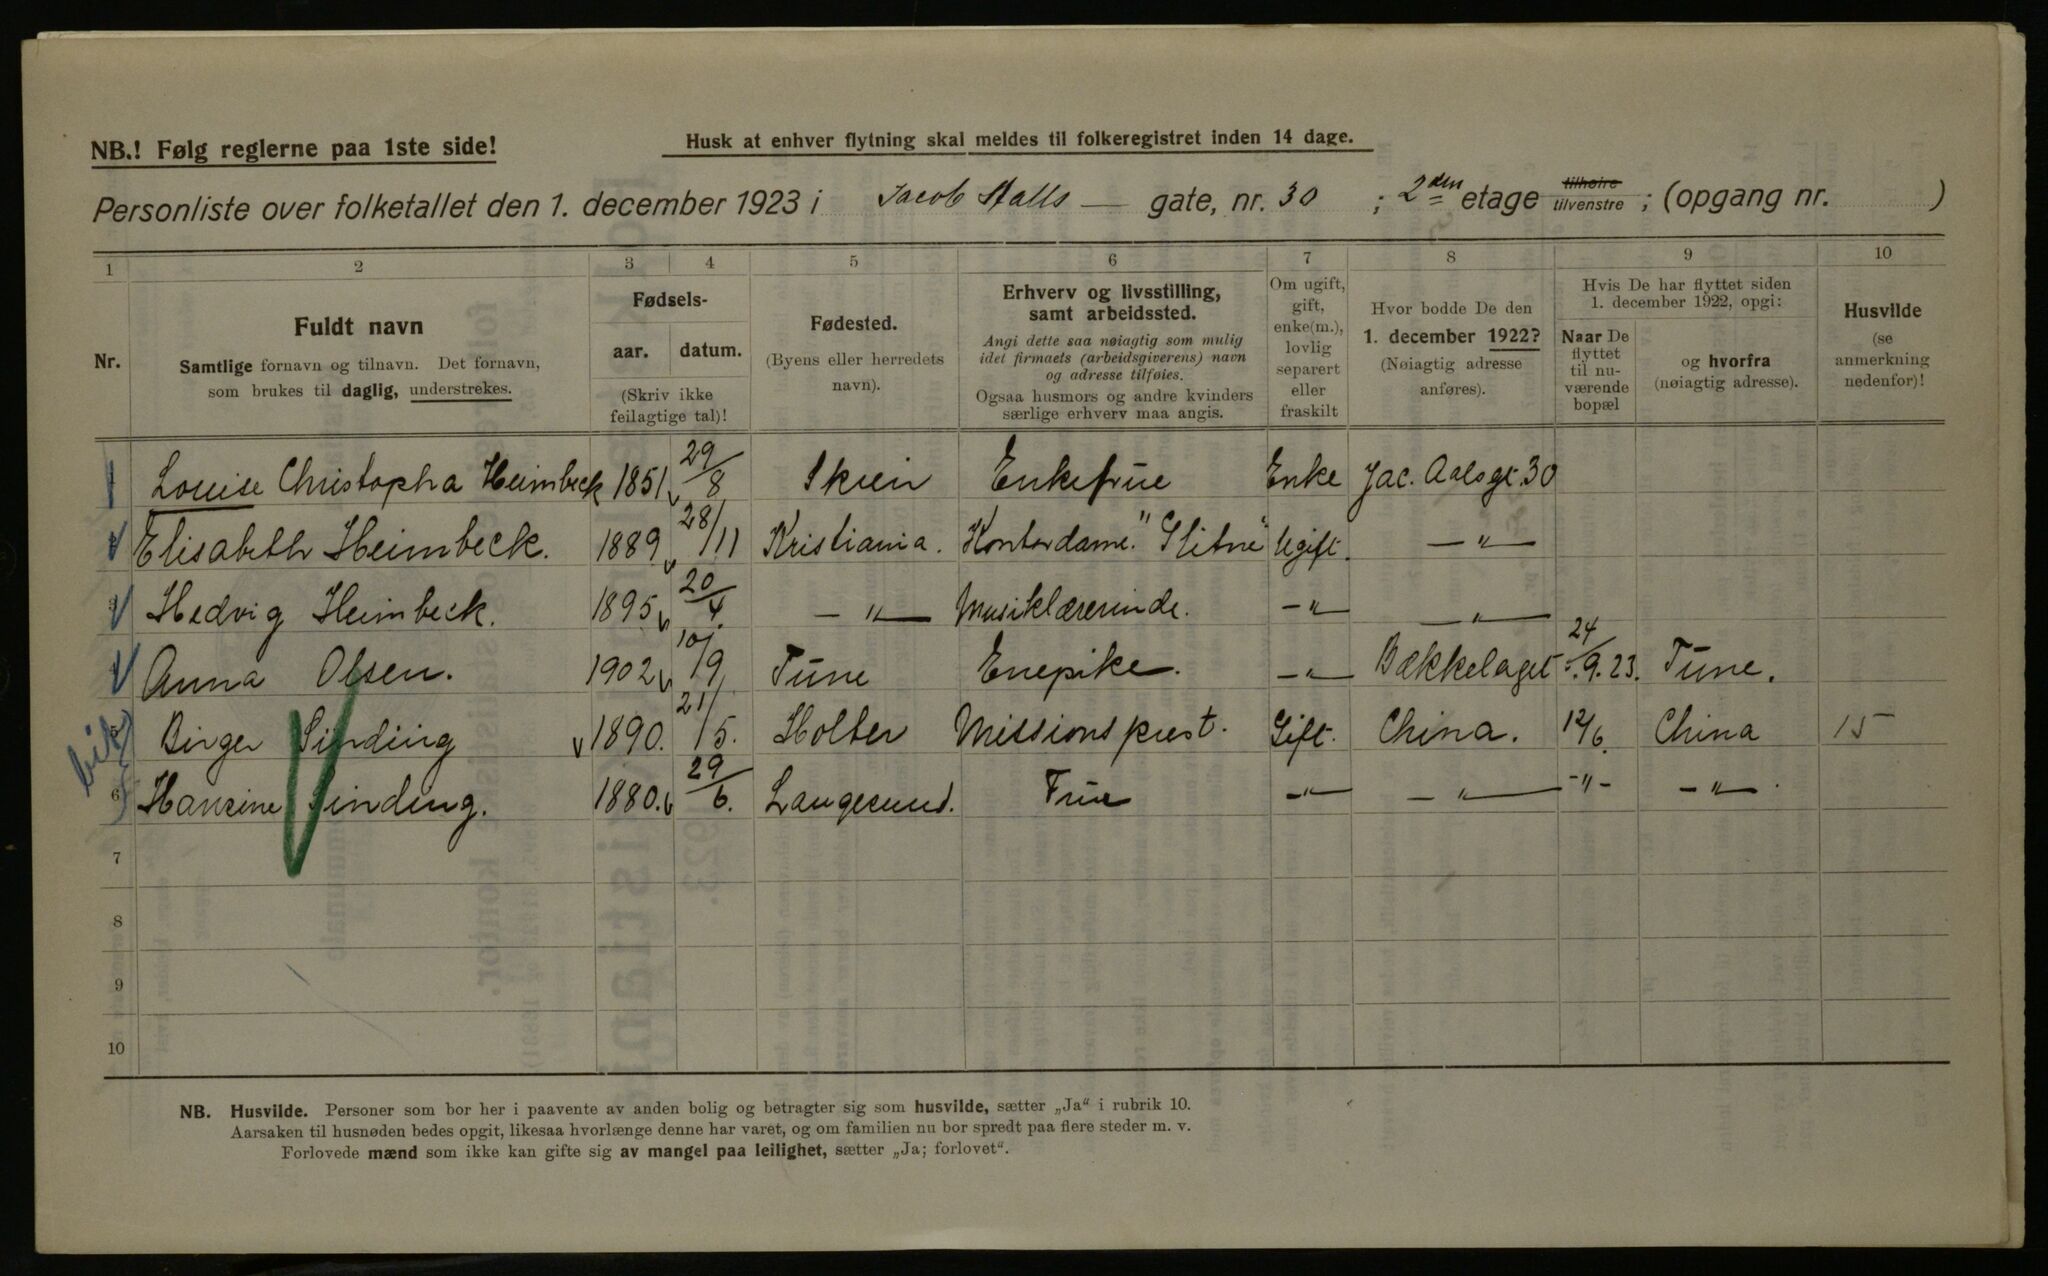 NB.! Følg reglerne paa 1ste side!
Husk at enhver flytning skal meldes til folkeregistret inden 14 dage.
Personliste over folketallet den 1. december 1923 i Jacob Aalls — gate, nr. 30 ; 2den etage tilhøire tilvenstre ; (opgang nr. )
1 2 3 4 5 6 7 8 9 10
Nr.
Fuldt navn
Samtlige fornavn og tilnavn. Det fornavn,
som brukes til daglig, understrekes.
Fødsels-
aar. datum.
(Skriv ikke
feilagtige tal)!
Fødested.
(Byens eller herredets
navn).
Erhverv og livsstilling,
samt arbeidssted.
Angi dette saa nøiagtig som mulig
idet firmaets (arbeidsgiverens) navn
og adresse tilføies.
Ogsaa husmors og andre kvinders
særlige erhverv maa angis.
Om ugift,
gift,
enke(m.),
lovlig
separert
eller
fraskilt
Hvor bodde De den
1. december 1922?
(Nøiagtig adresse
anføres).
Hvis De har flyttet siden
1. december 1922, opgi:
Naar De
flyttet
til nu-
værende
bopæl
og hvorfra
(nøiagtig adresse).
Husvilde
(se
anmerkning
nedenfor)!
1 Louise Christopha Heimbeck 1851 29/8 Skien Enkefrue Enke Jac. Aalsgt. 30
2 Elisabeth Heimbeck. 1889 28/11 Kristiania. Kontordame. Ugift. —"—
3 Hedvig Heimbeck. 1895 20/4. —"— Musiklærerinde. —"— —"—
4 Anna Olsen. 1902 10/9 Tune Enepike. —"— Bækkelaget 24/9.23. Tune.
bik
5 Birger Sinding 1890. 21/5. Holter Missionsprest. Gift. China. 12/6. China 15
6 Hansine Sinding. 1880. 29/6. Langesund. Frue —"— —"— —"— —"—.
7
8
9
10
NB. Husvilde. Personer som bor her i paavente av anden bolig og betragter sig som husvilde, sætter „Ja“ i rubrik 10.
Aarsaken til husnøden bedes opgit, likesaa hvorlænge denne har varet, og om familien nu bor spredt paa flere steder m. v.
Forlovede mænd som ikke kan gifte sig av mangel paa leilighet, sætter „Ja; forlovet“.